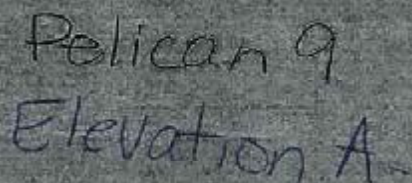 Pelican 9
Elevation A